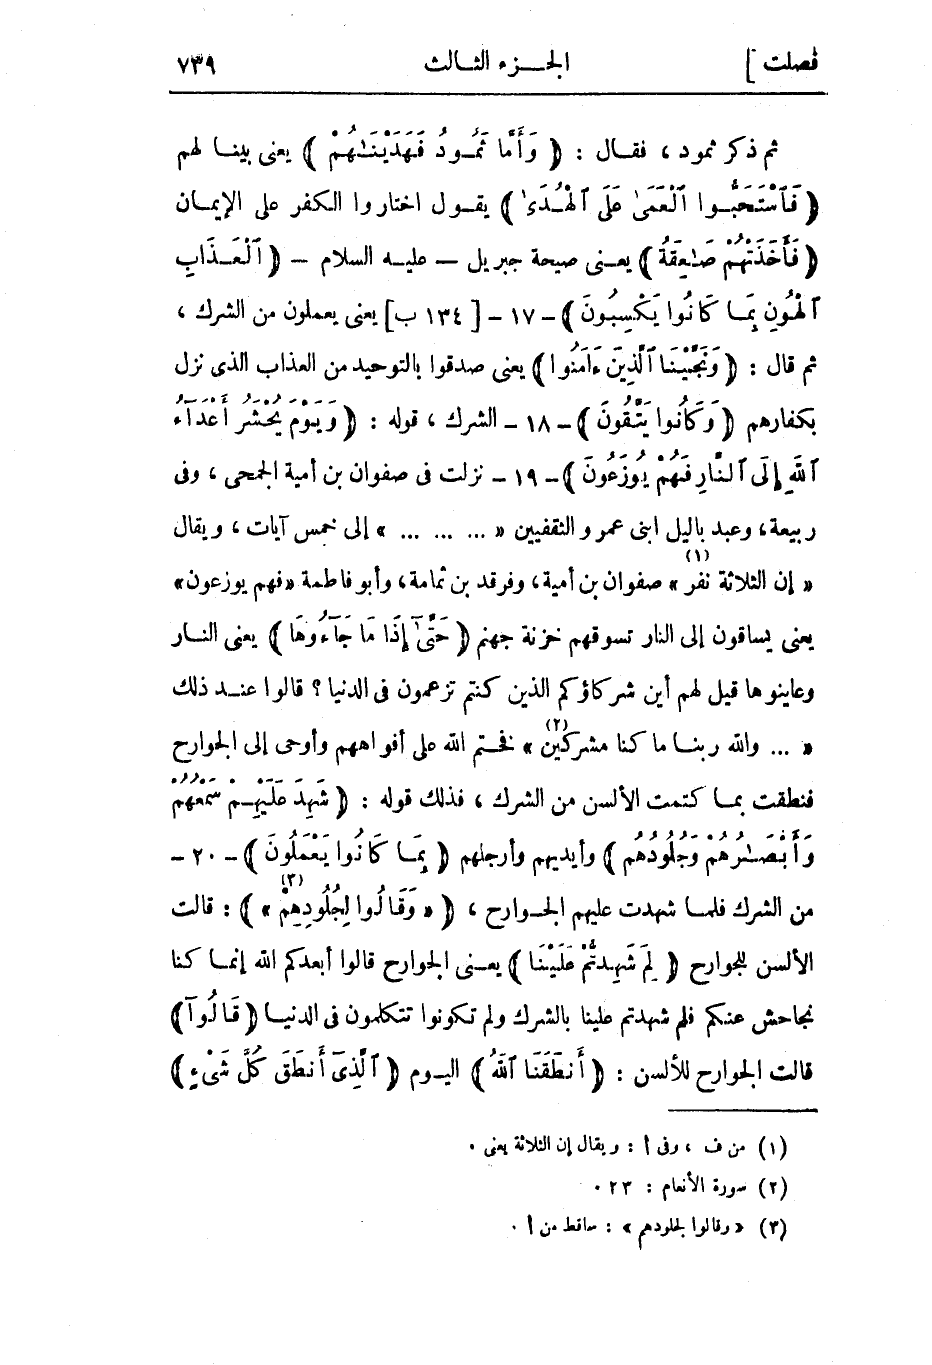 فصلت ] الجــزء الثــالث ٧٣٩
ثم ذكر ثمود ، فقــال : ( وَأَمَّا ثَمُــودُ فَهَدَيْنَـٰهُمْ ) يعنى بينــا لهم
( فَٱسْتَحَبُّــوا ٱلْعَمَىٰ عَلَى ٱلْهُــدَىٰ ) يقــول اختاروا الكفر على الإيمــان
( فَأَخَذَتْهُمْ صَـٰعِقَةُ ) يعــنى صيحة جبريل — عليــه السلام — ( ٱلْعَــذَابِ
ٱلْهُــونِ بِمَــا كَانُوا يَكْسِبُونَ ) - ١٧ - [ ١٣٤ ب ] يعنى يعملون من الشرك ،
ثم قال : ( وَنَجَّيْنَا ٱلَّذِينَ ءَامَنُوا ) يعنى صدقوا بالتوحيد من العذاب الذى نزل
بكفارهم ( وَكَانُوا يَتَّقُونَ ) - ١٨ - الشرك ، قوله : ( وَيَوْمَ يُحْشَرُ أَعْدَآءُ
ٱللَّهِ إِلَى ٱلنَّارِ فَهُمْ يُوزَعُونَ ) - ١٩ - نزلت فى صفوان بن أمية الجمحى ، وفى
ربيعة ، وعبد باليل ابنى عمرو الثقفيين « ... ... ... » إلى خمس آيات ، ويقال
« إن الثلاثة نفر » (١) صفوان بن أمية ، وفرقد بن ثمامة ، وأبو فاطمة « فهم يوزعون »
يعنى يساقون إلى النار تسوقهم خزنة جهنم ( حَتَّىٰٓ إِذَا مَا جَآءُوهَا ) يعنى النــار
وعاينوها قيل لهم أين شركاؤكم الذين كنتم تزعمون فى الدنيا ؟ قالوا عنــد ذلك
« ... والله ربنــا ما كنا مشركين » (٢) فختم الله على أفواههم وأوحى إلى الجوارح
فنطقت بمــا كتمت الألسن من الشرك ، فذلك قوله : ( شَهِدَ عَلَيْهِــمْ سَمْعُهُمْ
وَأَبْصَـٰرُهُمْ وَجُلُودُهُم ) وأيديهم وأرجلهم ( بِمَــا كَانُوا يَعْمَلُونَ ) - ٢٠ -
من الشرك فلمــا شهدت عليهم الجــوارح ، ( « وَقَالُوا لِجُلُودِهِمْ » (٣) ) : قالت
الألسن للجوارح ( لِمَ شَهِــدتُّمْ عَلَيْنَا ) يعــنى الجوارح قالوا أبعدكم الله إنمــا كنا
نجاحش عنكم فلم شهدتم علينا بالشرك ولم تكونوا تتكلمون فى الدنيــا ( قَالُوٓا )
قالت الجوارح للألسن : ( أَنطَقَنَا ٱللَّهُ ) اليــوم ( ٱلَّذِىٓ أَنطَقَ كُلَّ شَىْءٍ )
(١) من ف ، وفى أ : ويقال إن الثلاثة يعنى .
(٢) سورة الأنعام : ٢٣ .
(٣) « وقالوا لجلودهم » : ساقط من أ .